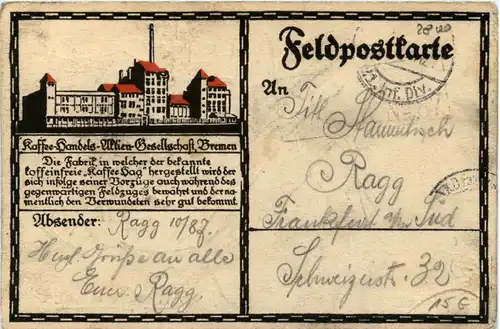 Feldpostkarte
An
Inf. Div.
Titl. Stammtisch
Ragg
Frankfurt a/m Süd
Schweizerstr. 32
Kaffee-Handels-Aktien-Gesellschaft, Bremen
Die Fabrik, in welcher der bekannte
koffeinfreie „Kaffee Hag" hergestellt wird der
sich infolge seiner Vorzüge auch während des
gegenwärtigen Feldzuges bewährt und der na-
mentlich den Verwundeten sehr gut bekommt.
Absender: Ragg 10/87.
Herzl. Grüße an alle
Euer Ragg
15€